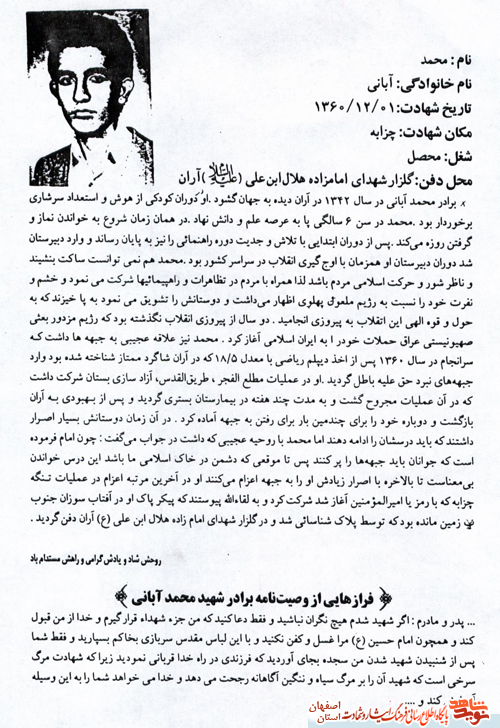 نام : محمد
نام خانوادگی: آبانی
تاریخ شهادت: ۱۳۶۰/۱۲/۰۱
مکان شهادت: چزابه
شغل: محصل
محل دفن: گلزار شهدای امامزاده هلال ابن علی (علیه السلام) آران
برادر محمد آبانی در سال ۱۳۴۲ در آران دیده به جهان گشود . او دوران کودکی از هوش و استعداد سرشاری
برخوردار بود .محمد در سن ۶ سالگی پا به عرصه علم و دانش نهاد .در همان زمان شروع به خواندن نماز و
گرفتن روزه می‌کند .پس از دوران ابتدایی با تلاش و جدیت دوره راهنمائی را نیز به پایان رساند و وارد دبیرستان
شد دوران دبیرستان او همزمان با اوج گیری انقلاب در سراسر کشور بود .محمد هم نمی توانست ساکت بنشیند
و ناظر شور و حرکت اسلامی مردم باشد لذا همراه با مردم در تظاهرات و راهپیمائیها شرکت می نمود و خشم و
نفرت خود را نسبت به رژیم ملعون پهلوی اظهار می‌داشت و دوستانش را تشویق می نمود به پا خیزند که به
حول و قوه الهی این انقلاب به پیروزی انجامید . دو سال از پیروزی انقلاب نگذشته بود که رژیم مزدور بعثی
صهیونیستی عراق حملات خود را به ایران اسلامی آغاز کرد . محمد نیز علاقه عجیبی به جبهه ها داشت که
سرانجام در سال ۱۳۶۰ پس از اخذ دیپلم ریاضی با معدل ۱۸/۵ که در آران شاگرد ممتاز شناخته شده بود وارد
جبهه‌های نبرد حق علیه باطل گردید .او در عملیات مطلع الفجر ، طریق‌القدس، آزاد سازی بستان شرکت داشت
که در آن عملیات مجروح گشت و به مدت چند هفته در بیمارستان بستری گردید و پس از بهبودی به آران
بازگشت و دوباره خود را برای چندمین بار برای رفتن به جبهه آماده کرد . در آن زمان دوستانش بسیار اصرار
داشتند که باید درسشان را ادامه دهند اما محمد با روحیه عجیبی که داشت در جواب می‌گفت : چون امام فرموده
است که جوانان باید جبهه‌ها را پر کنند پس تا موقعی که دشمن در خاک اسلامی ما باشد این درس خواندن
بی‌معناست تا بالاخره با اصرار زیادش او را به جبهه اعزام می‌کنند او در آخرین مرتبه اعزام در عملیات تنگه
چزابه که با رمز یا امیرالمؤمنین آغاز شد شرکت کرد و به لقاءالله پیوستند که پیکر پاک او در آفتاب سوزان جنوب
زمین مانده بود که توسط پلاک شناسائی شد و در گلزار شهدای امام زاده هلال ابن علی (ع) آران دفن گردید .
روحش شاد و یادش گرامی و راهش مستدام باد
فرازهایی از وصیت‌نامه برادر شهید محمد آبانی
... پدر و مادرم : اگر شهید شدم هیچ نگران نباشید و فقط دعا کنید که من جزء شهداء قرار گیرم و خدا از من قبول
کند و همچون امام حسین (ع) مرا غسل و کفن نکنید و با این لباس مقدس سربازی بخاکم بسپارید و فقط شما
پس از شنیدن شهید شدن من سجده بجای آوردید که فرزندی در راه خدا قربانی نمودید زیرا که شهادت مرگ
سرخی است که شهید آن را بر مرگ سیاه و ننگین آگاهانه رجحت می دهد و خدا می خواهد شما را به این وسیله
کند و ....
نوید شاهد
پایگاه اطلاع رسانی فرهنگ ایثار و شهادت
استان اصفهان